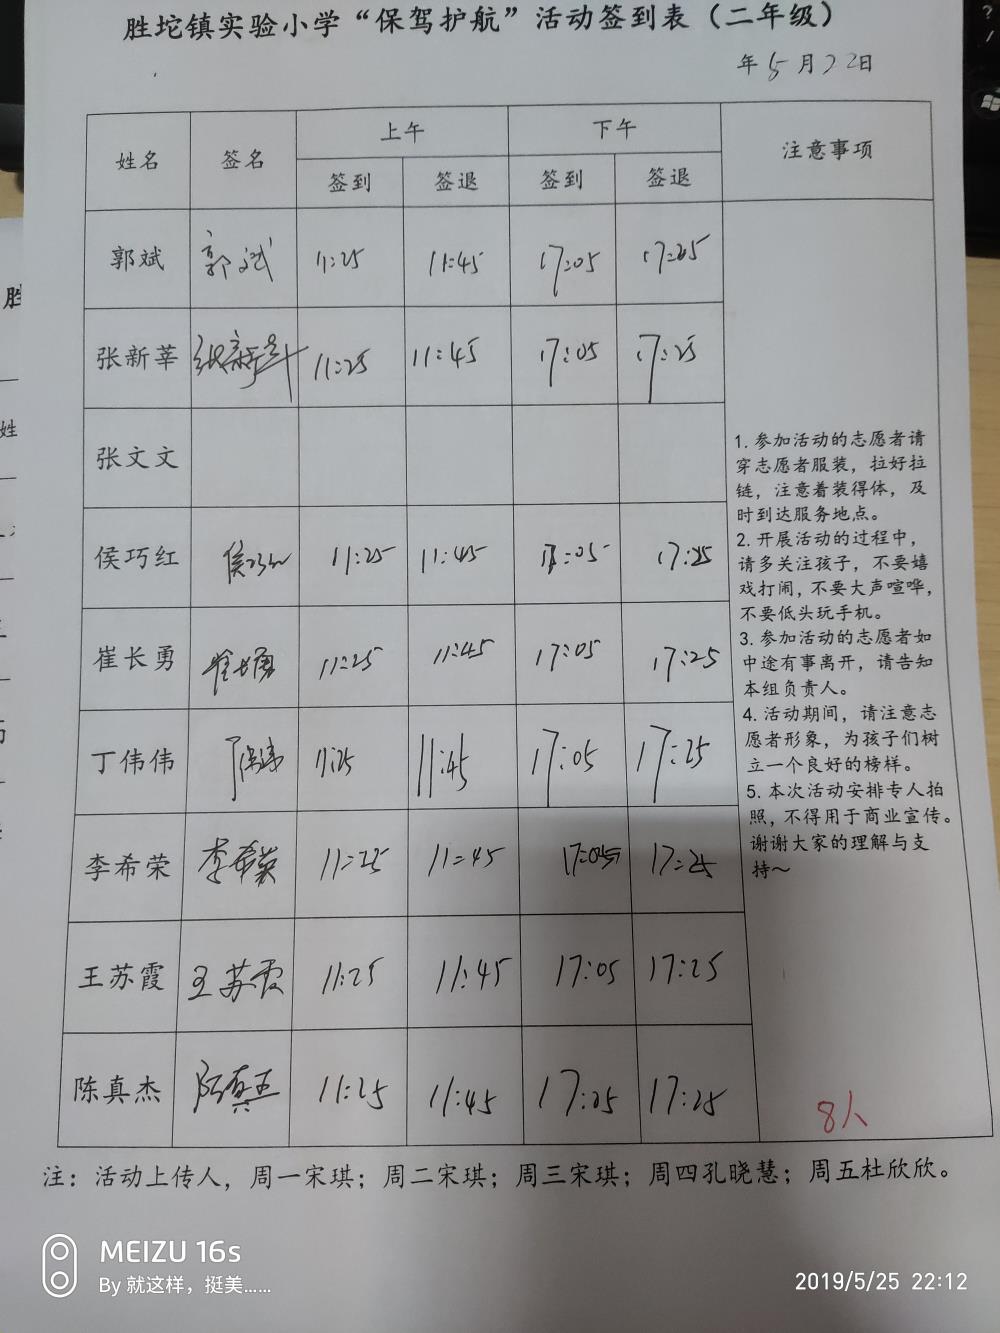 胜坨镇实验小学“保驾护航”活动签到表（二年级）
年5月22日
姓名 签名 上午 下午 注意事项
签到 签退 签到 签退
郭斌 郭斌 11:25 11:45 17:05 17:25
张新莘 张新莘 11:25 11:45 17:05 17:25
张文文
侯巧红 侯巧红 11:25 11:45 17:05 17:25
崔长勇 崔长勇 11:25 11:45 17:05 17:25
丁伟伟 丁伟伟 11:25 11:45 17:05 17:25
李希荣 李希荣 11:25 11:45 17:05 17:25
王苏霞 王苏霞 11:25 11:45 17:05 17:25
陈真杰 陈真杰 11:25 11:45 17:05 17:25
1. 参加活动的志愿者请
穿志愿者服装，拉好拉
链，注意着装得体，及
时到达服务地点。
2. 开展活动的过程中，
请多关注孩子，不要嬉
戏打闹，不要大声喧哗，
不要低头玩手机。
3. 参加活动的志愿者如
中途有事离开，请告知
本组负责人。
4. 活动期间，请注意志
愿者形象，为孩子们树
立一个良好的榜样。
5. 本次活动安排专人拍
照，不得用于商业宣传。
谢谢大家的理解与支
持～
8人
注：活动上传人，周一宋琪；周二宋琪；周三宋琪；周四孔晓慧；周五杜欣欣。
胜
姓
MEIZU 16s
By 就这样，挺美……
2019/5/25 22:12